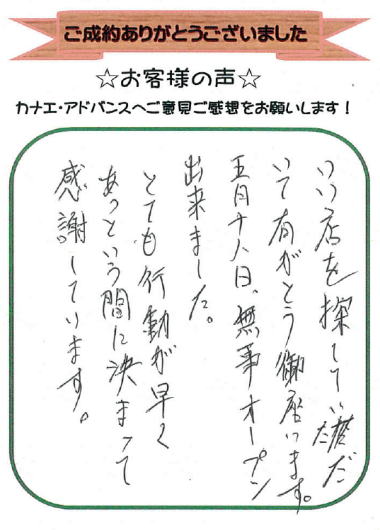 ご成約ありがとうございました
☆お客様の声☆
カナエ・アドバンスへご意見ご感想をお願いします！
いい店を探してい頂だ
いて有がとう御座います。
五月十八日、無事オープン
出来ました。
とても行動が早く
あっという間に決まって
感謝しています。